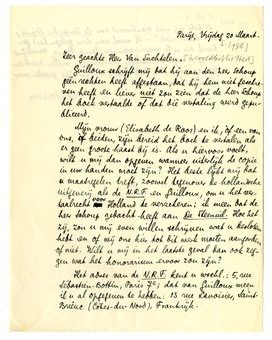 Parijs, Vrijdag 20 Maart.
[1936]
Zeer geachte Heer Van Suchtelen, [Wereldbibliotheek]
Guilloux schrijft mij dat hij aan den heer Schoup
geen rechten heeft afgestaan, dat hij hem niet geschre-
ven heeft en liever niet zou zien dat de heer Schoup
het boek vertaalde of dat die vertaling werd gepu-
bliceerd.
Mijn vrouw (Elisabeth de Roos) en ik, of een van
ons beiden, zijn bereid het boek te vertalen, als
er geen groote haast bij is. Als u hiervoor voelt,
wilt u mij dan opgeven wanneer uiterlijk de copie
in uw handen moet zijn? Het beste lijkt mij dat
u maatregelen treft, zoowel tegenover de hollandsche
uitgeverij als de N.R.F. en Guilloux, om u het ver-
taalrecht voor Holland te verzekeren; ik meen dat de
heer Schoup gedacht heeft aan De Meulenhoff. Hoe het
zij, zou u mij even willen schrijven wat u besloten
hebt en of wij ons met het werk moeten aanvaarden,
of niet. Wilt u mij in het laatste geval dan ook zeg-
gen wat het honorarium ervoor zou zijn?
Het adres van de N.R.F. kent u wschl.: 5, rue
Sébastien-Bottin, Paris 7e; dat van Guilloux meen
ik u al opgegeven te hebben: 13 rue Lavoisier, Saint-
Brieuc (Côtes-du-Nord), Frankrijk.